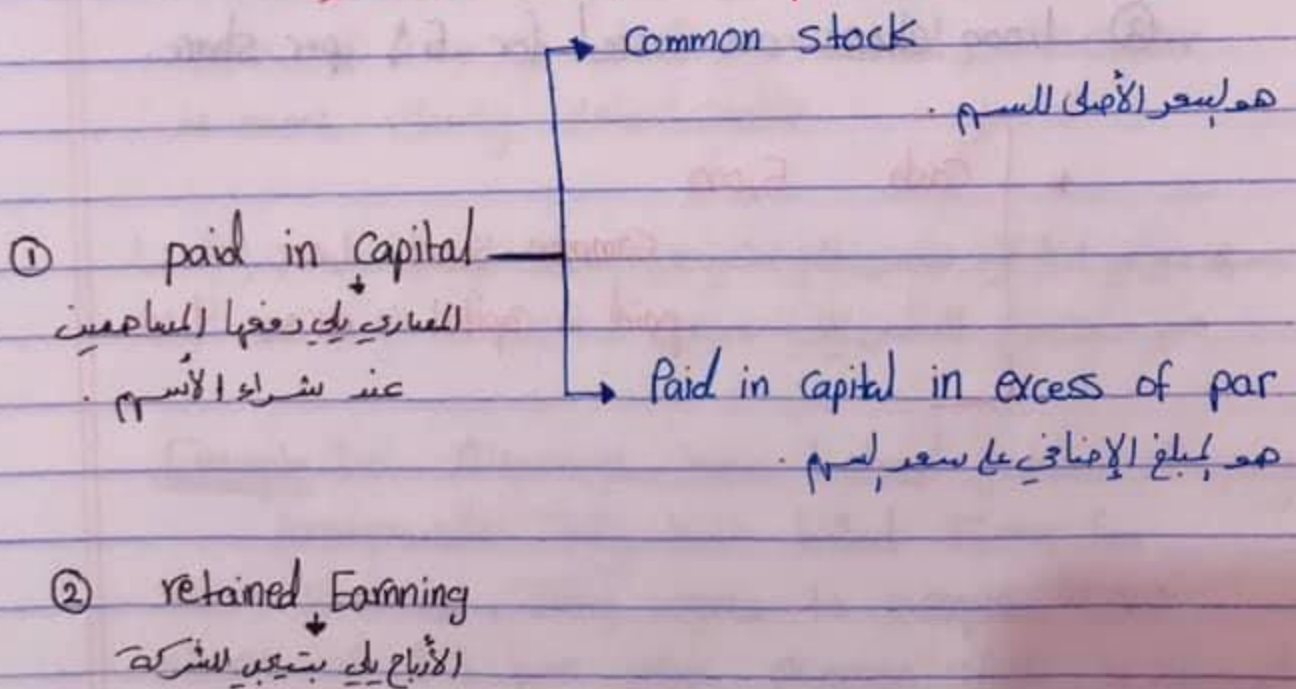 Common stock
هو لسعر الأصلي للسهم .
① paid in Capital
المصاري يلي دفعها المساهمين
عند شراء الأسهم .
Paid in Capital in excess of par
هو لمبلغ الإضافي على سعر لسهم .
② retained Earnning
الأرباح يلي بتيجي للشركة